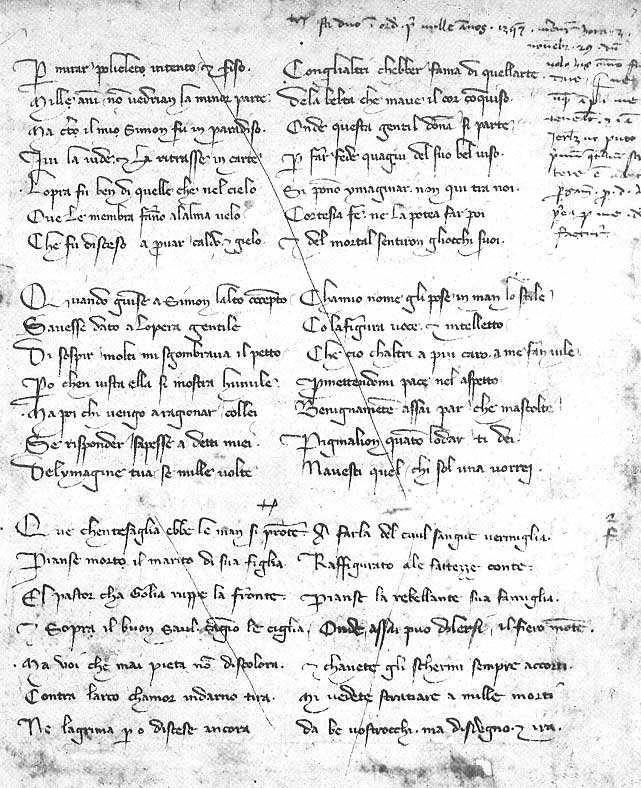 hora 3
novembr. 29. dum
volo his
P mirar policleto intento ⁊ fiso. Conglialtri chebber fama di quellarte.
Mille anni nō vedrian la minor parte. Dela belta che mave il cor cōquiso.
Ma certo il mio Simon fu in paradiso. Onde questa gentil dōna si parte.
Ivi la vide. ⁊ la ritrasse in carte. P far fede quagiu del suo bel viso.
Lopra fu ben di quelle che nel cielo Si pono ymaginar. non qui tra noi.
Ove le membra fāno alalma velo Cortesia fe. ne la potea far poi
Che fu disceso a provar caldo ⁊ gielo. ⁊ del mortal sentiron gliocchi suoi.
Quando giunse a Simon lalto concepto Chamio nome gli pose in man lo stile
Savesse dato a lopera gentile Co la figura voce. ⁊ intelletto
Di sospir molti mi sgombrava il petto Che cio chaltri a piu caro. a me fan vile.
Po chen vista ella si mostra humile. Pmettendomi pace nel aspetto
Ma poi chi vengo a ragionar collei Benignamēte assai par che mascolte
Se risponder savesse a detti miei. Pigmalion quāto lodar ti dei.
Delymagine tua. se mille volte Navesti quel chi sol una vorrei.
Que chentesaglia ebbe le man si prōte A farla del civil sangue vermiglia.
Pianse morto il marito di sua figlia. Raffigurato ale fattezze conte.
El pastor cha Golia ruppe la fronte. Pianse la rebellante sua famiglia.
⁊ Sopra il buon Saul. cāgio le ciglia. Onde assai puo dolersi, il fiero mōte.
Ma voi che mai pieta nō discolora. ⁊ chavete gli schermi sempre accorti.
Contra larco chamor indarno tira. Mi vedete stratiare a mille morti
Ne lagrima po discese ancora da be vostrocchi. ma disdegno. ⁊ ira.